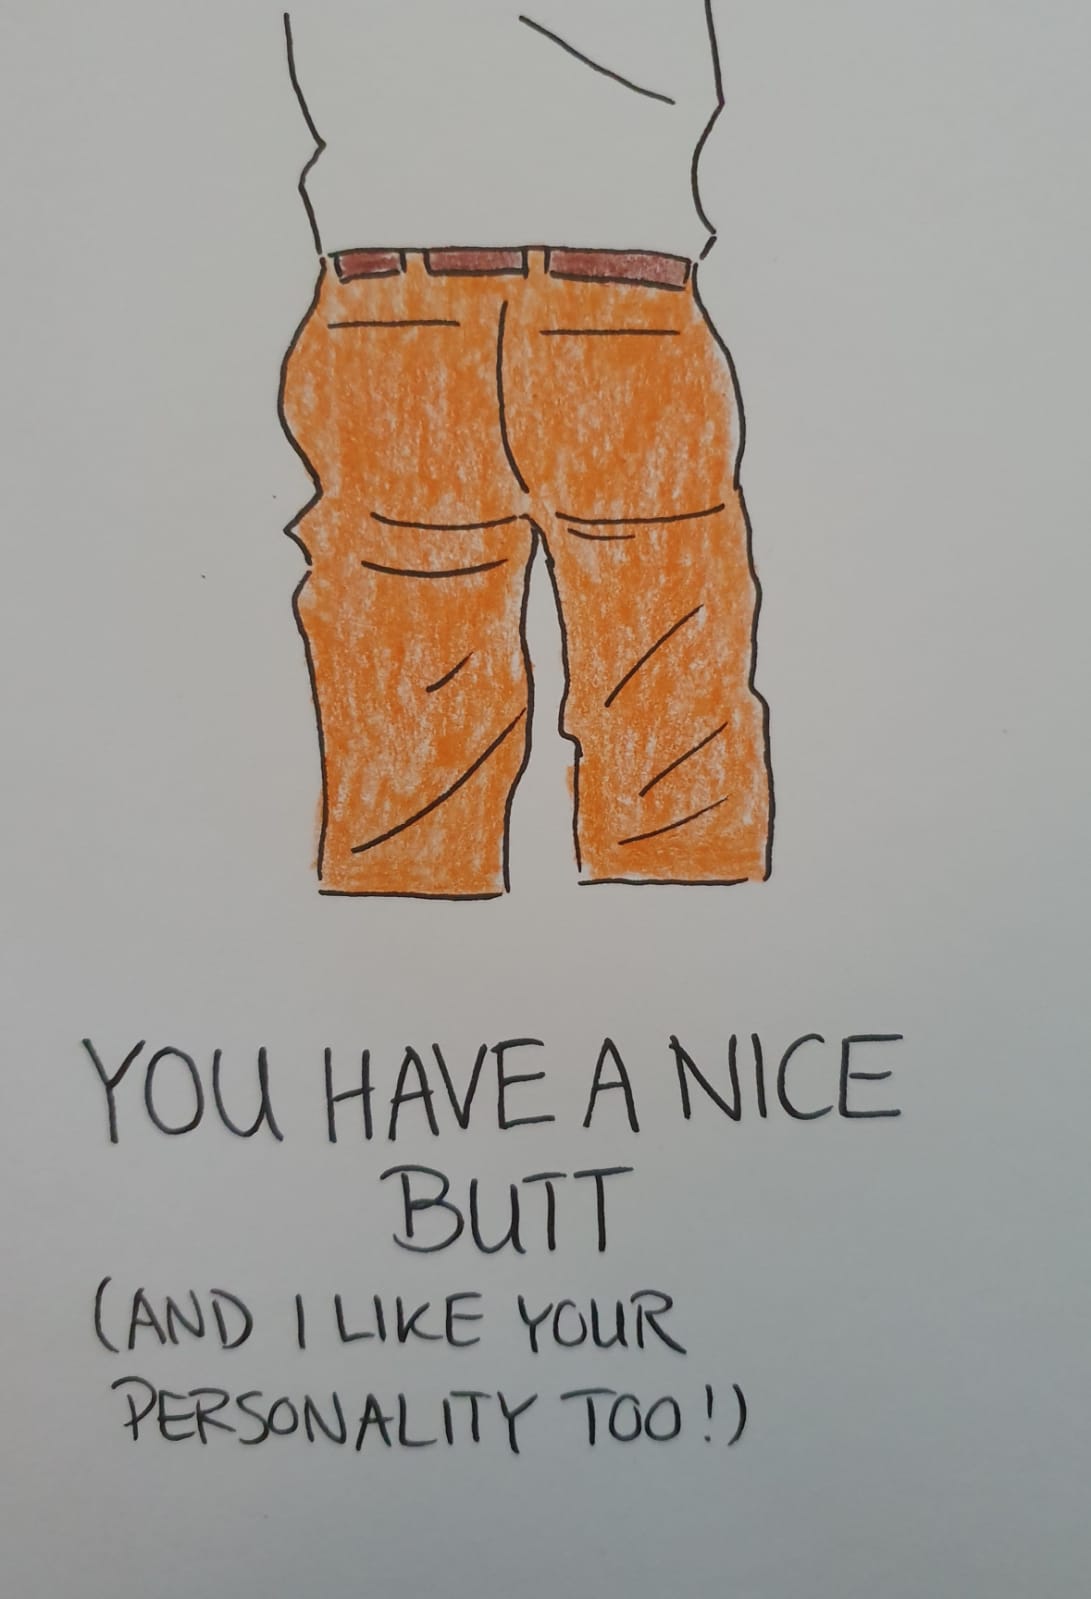 YOU HAVE A NICE
BUTT
(AND I LIKE YOUR
PERSONALITY TOO!)